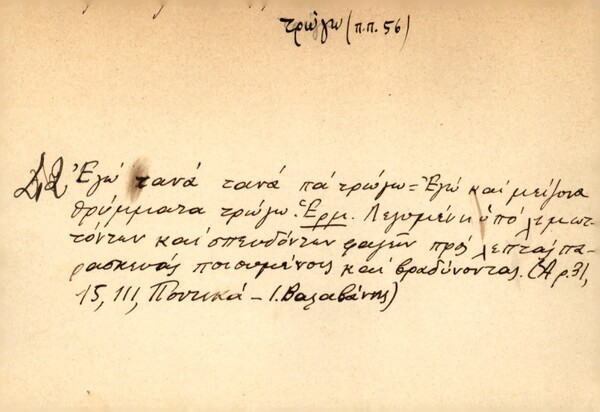 τρώγω (π.π. 56)
Ἐγώ τανά τανά πά τρώγω = Ἐγώ καί μείζονα
θρύμματα τρώγω. Ἑρμ. Λεγομένη ὑπό λιμωτ-
τόντων καί σπευδόντων φαγεῖν πρός λεπτάς πα-
ρασκευάς ποιουμένους καί βραδύνοντας. (Ἀρ. 31,
15, III, Ποντικά – Ι. Βαλαβάνης)